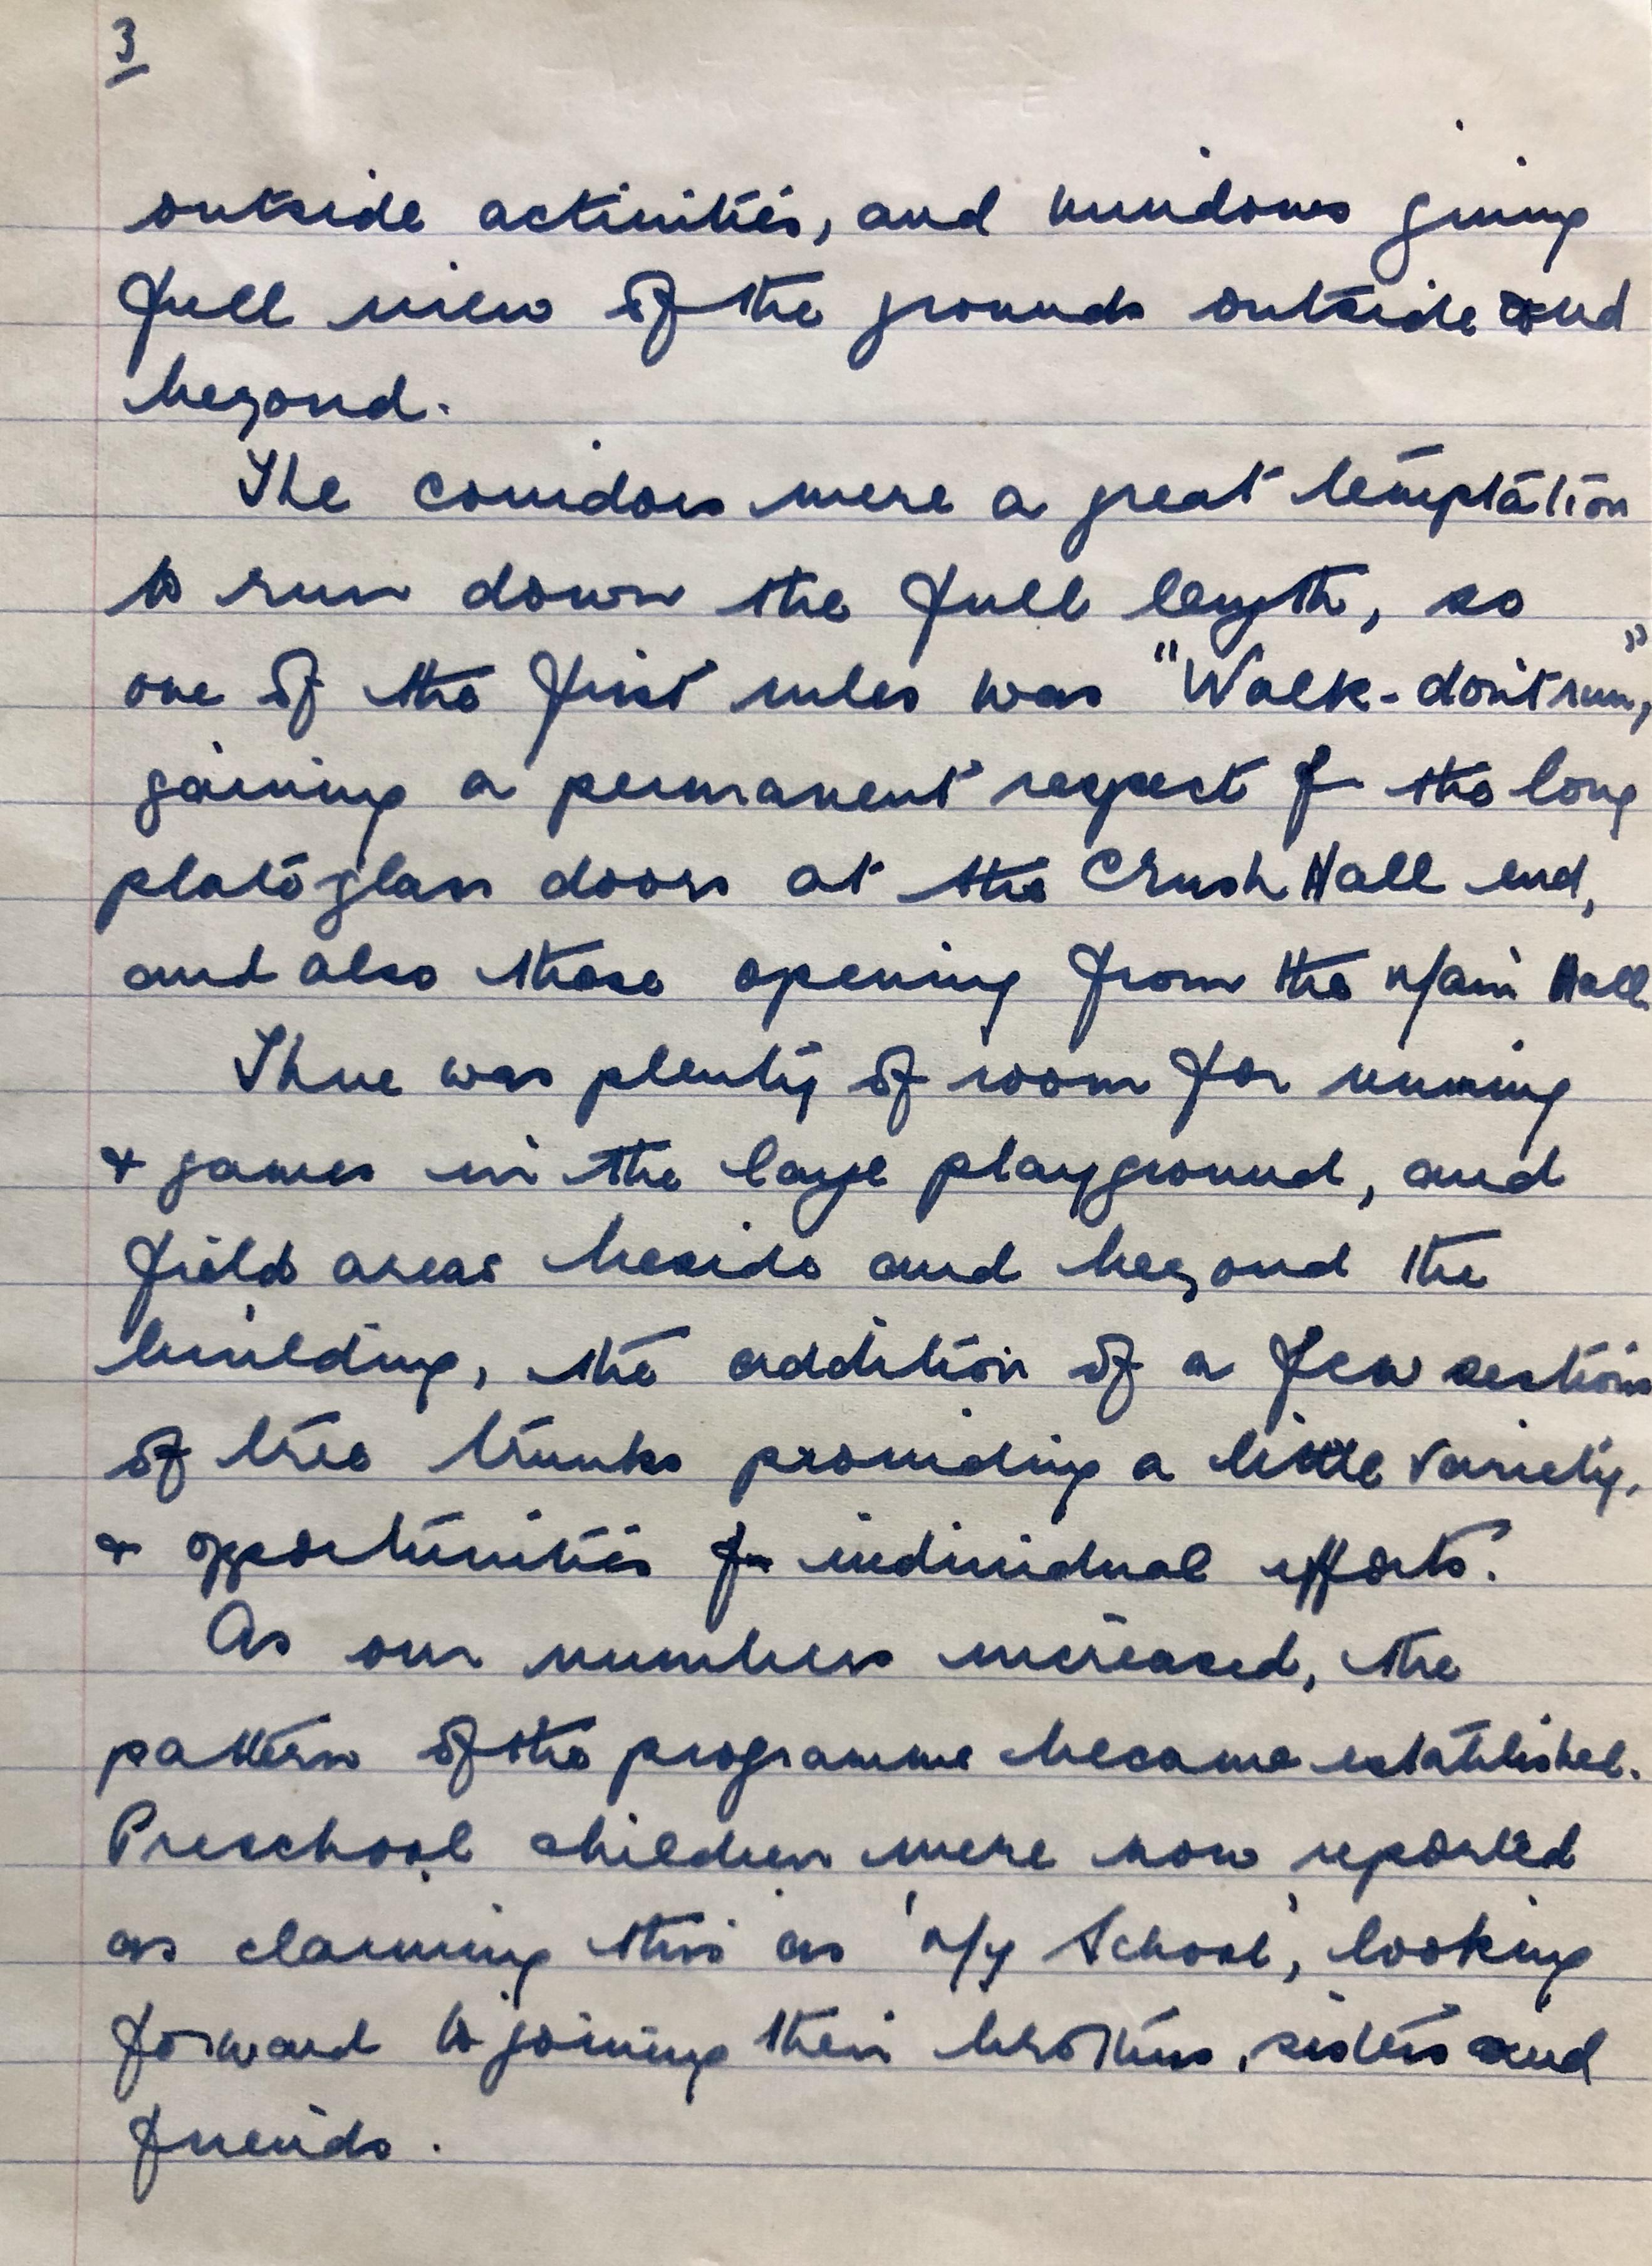 3
outside activities, and windows giving
full view of the grounds outside and
beyond.
The corridors were a great temptation
to run down the full length, so
one of the first rules was "Walk - don't run",
gaining a permanent respect for the long
plate glass doors at the Crush Hall end,
and also those opening from the Main Hall
There was plenty of room for running
& games in the large playground, and
field areas beside and beyond the
building, the addition of a few sections
of tree trunks providing a little variety,
& opportunities for individual efforts.
As our numbers increased, the
pattern of the programme became established.
Preschool children were now reported
as claiming this as 'My School', looking
forward to joining their brothers, sisters and
friends.